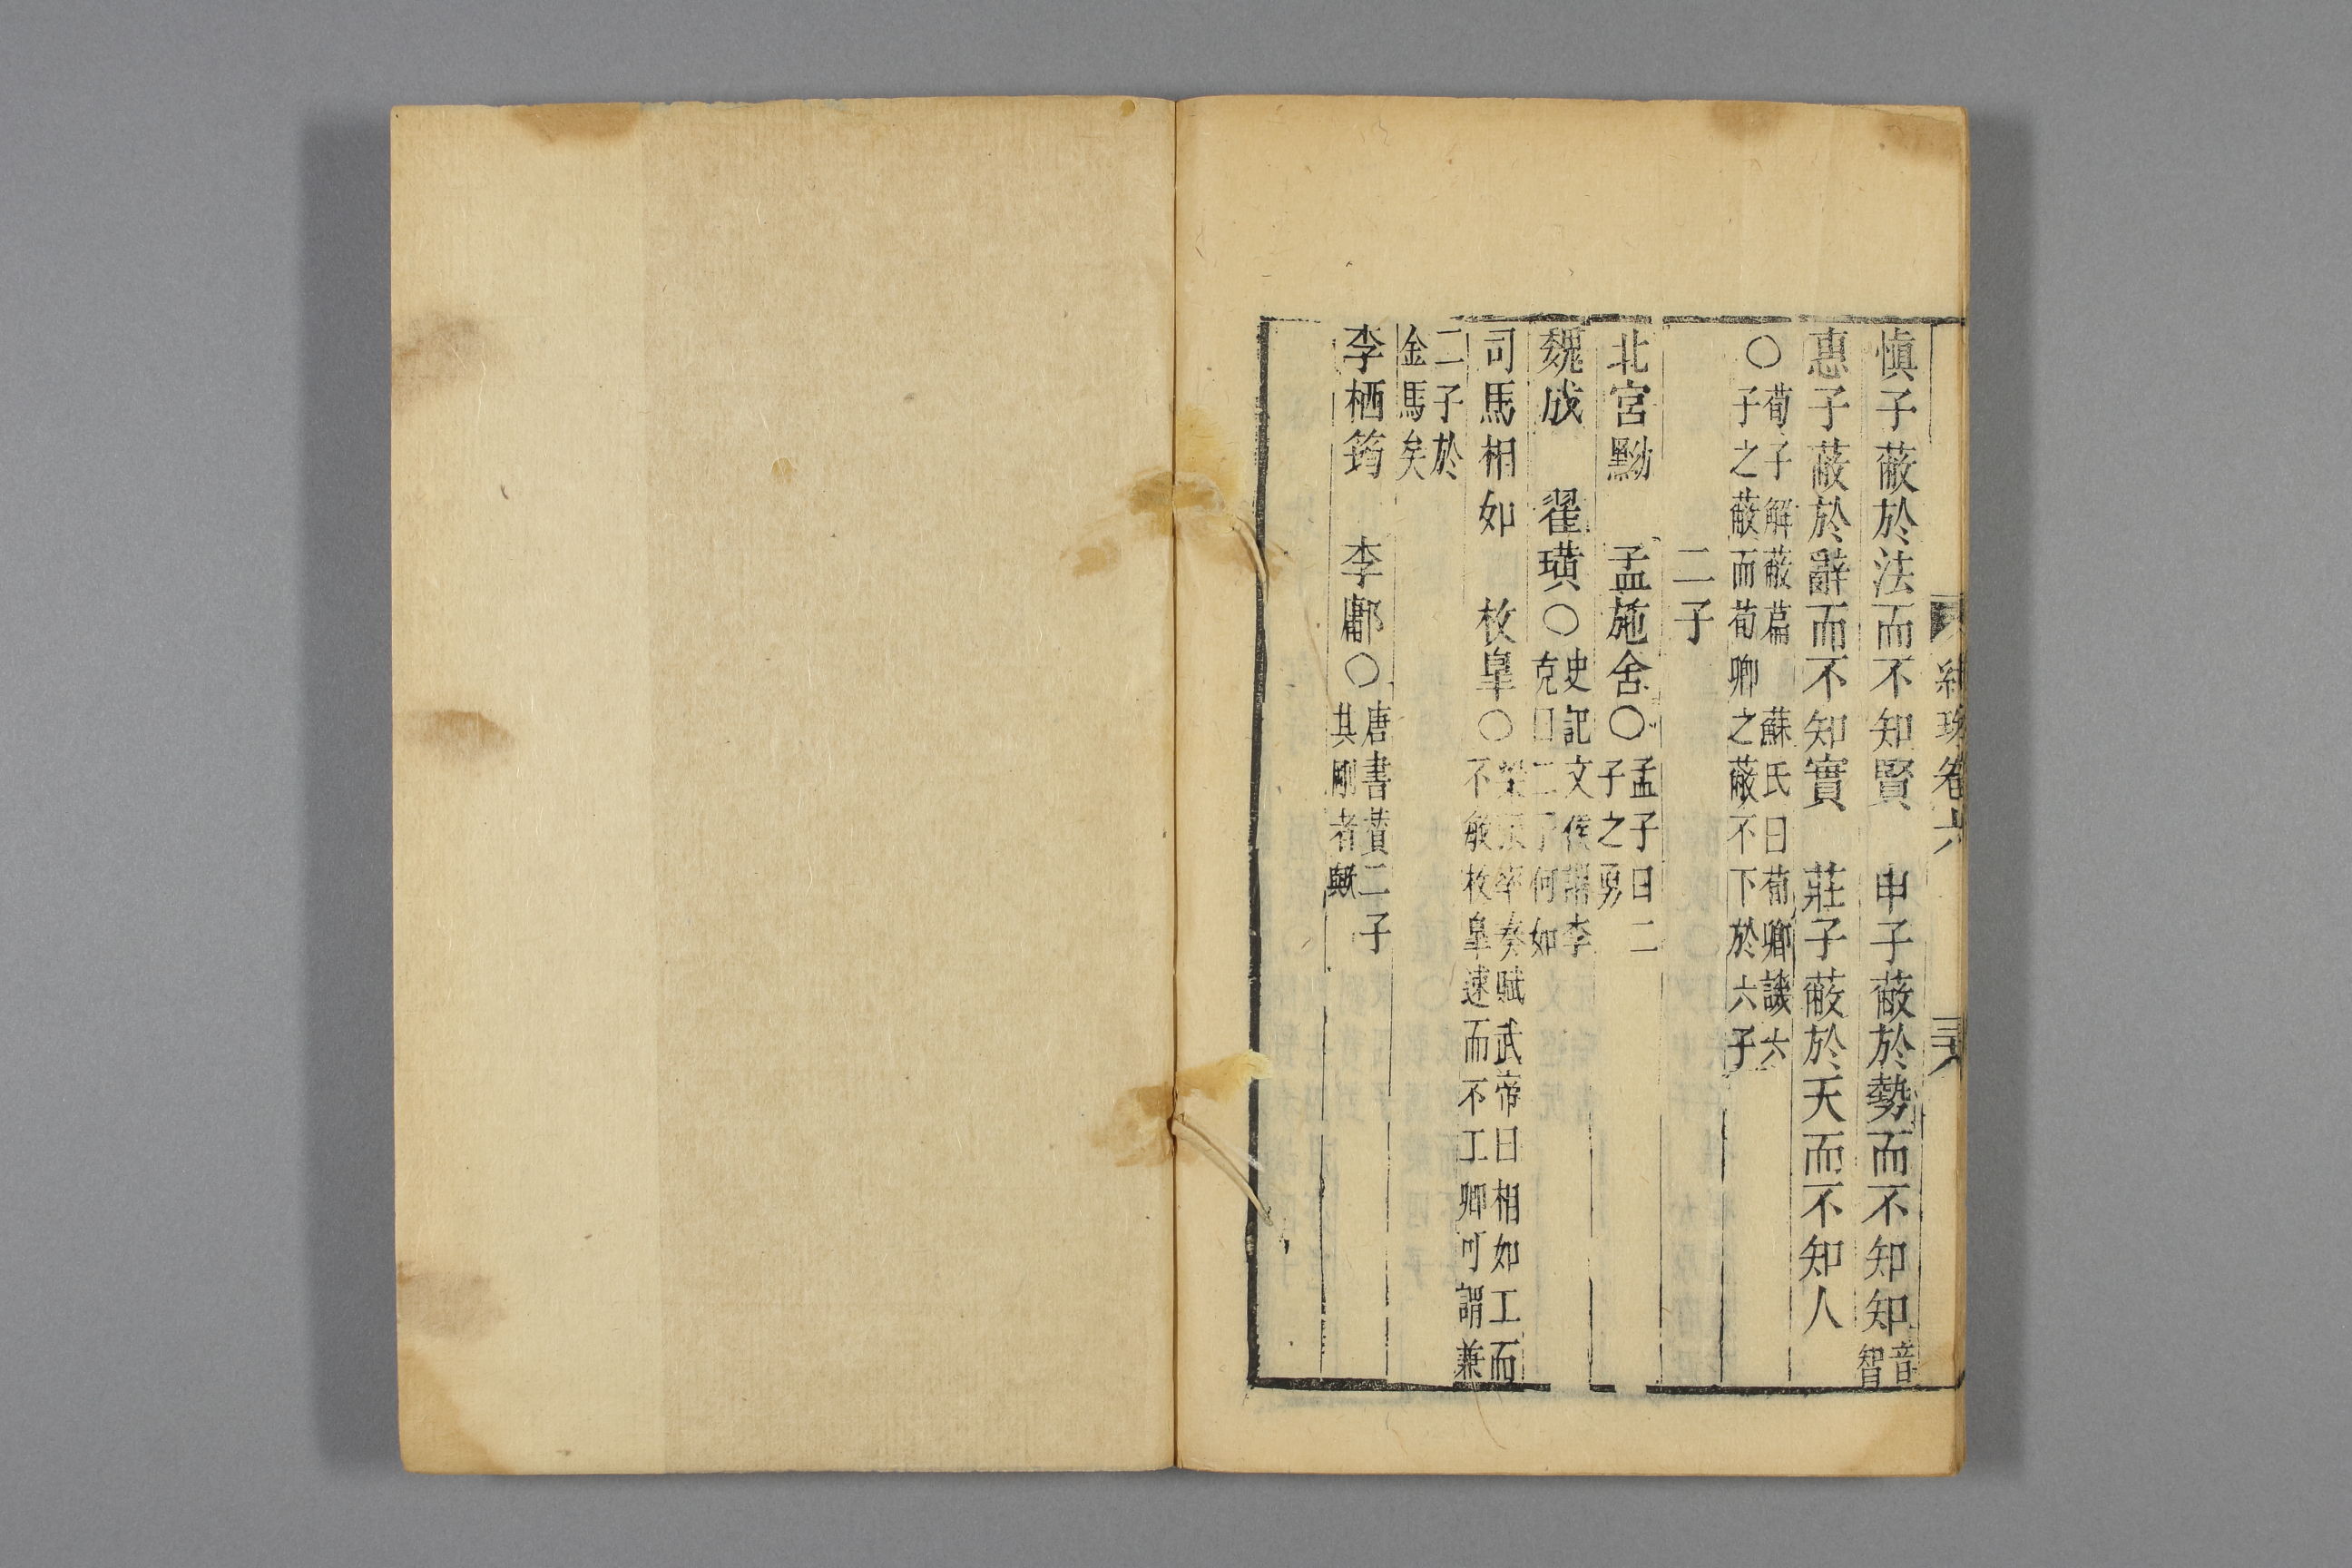 紺珠卷六
慎子蔽於法而不知賢　申子蔽於勢而不知知音智
惠子蔽於辭而不知實　莊子蔽於天而不知人
〇荀子解蔽篇　蘇氏曰荀卿譏六
子之蔽而荀卿之蔽不下於六子
二子
北宮黝　孟施舍〇孟子曰二
子之勇
魏成　翟璜〇史記文侯謂李
克曰二子何如
司馬相如　枚皐〇奏賦武帝曰相如工而
不敏枚皐速而不工卿可謂兼
二子於
金馬矣
李栖筠　李鄘〇唐書贊二子
其剛者歟